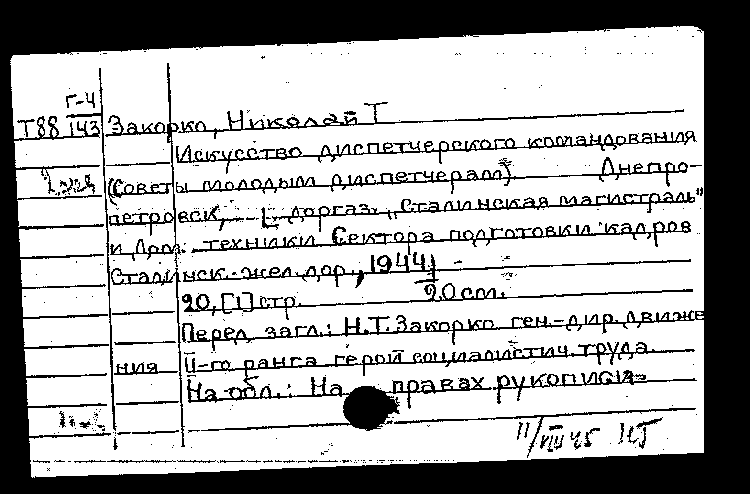 Г-4
Т88 143 Закорко, Николай Т
Искусство диспетчерского командования
2 экз (Советы молодым диспетчерам). Днепро-
петровск, доргаз. „Сталинская магистраль"
и Дом. техники Сектора подготовки кадров
Сталинск. жел. дор., 1944
20, [1] стр. 20 см.
Перед загл.: Н.Т. Закорко ген.-дир. движе
ния II-го ранга герой социалистич. труда
На обл.: На правах рукописи
11/VIII 45